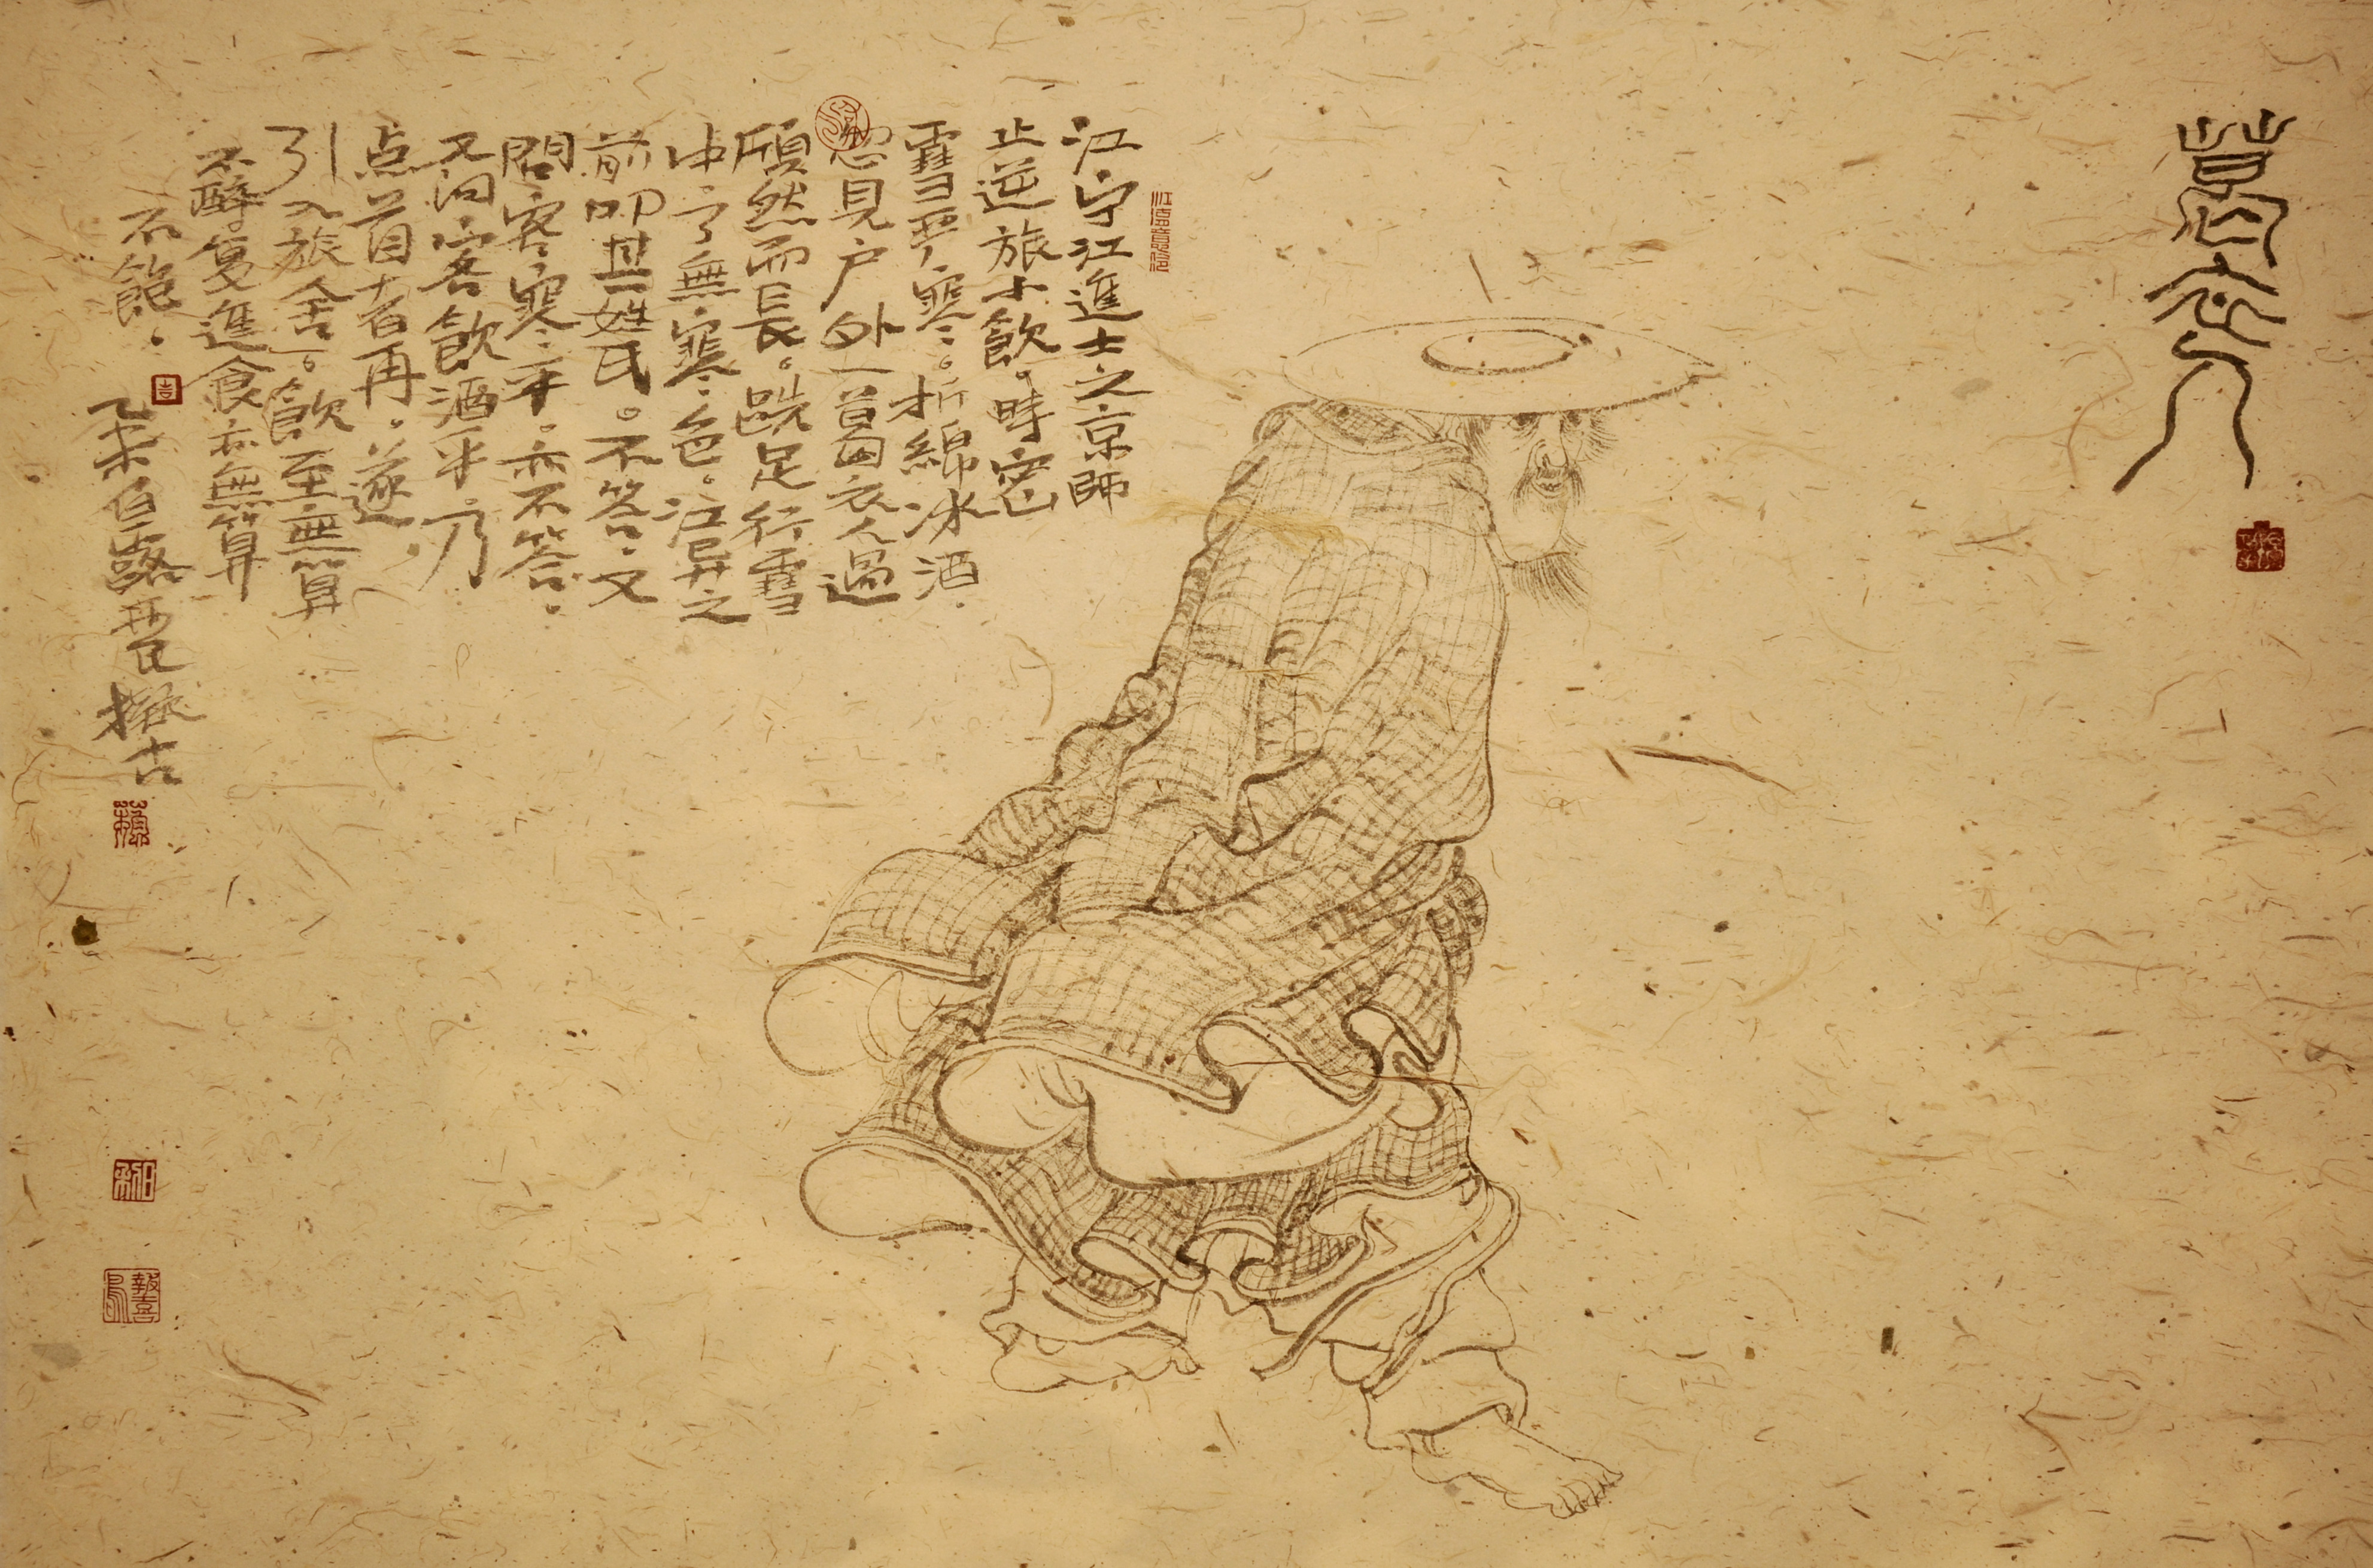 葛衣人
江宁江進士之京師
止逆旅小飲。時密
雪严寒。折綿冰酒.
忽見户外一葛衣人過
頎然而長。跣足行雪
中了無寒色。江异之
前叩其姓氏。不答.又
問客寒乎.亦不答.
又問客飲酒乎乃
点首者再.遂
引入旅舍。飲至無算
不醉复進食亦無算
不飽.
吉
乙未白露 擬古
報喜鳥